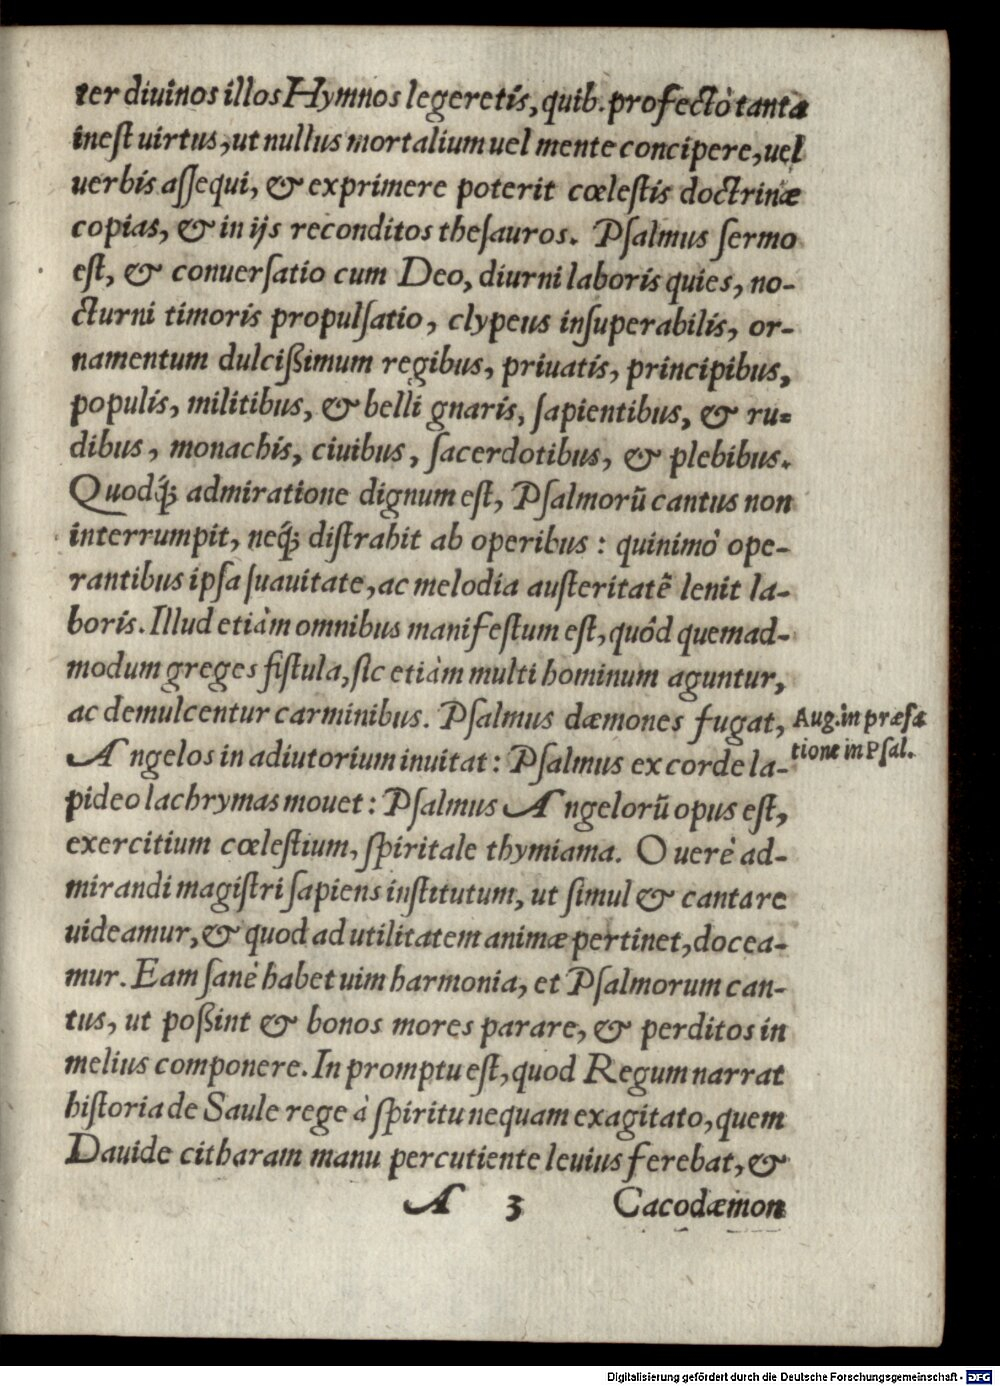 ter diuinos illos Hymnos legeretis, quib. profectò tanta
inest uirtus, ut nullus mortalium uel mente concipere, uel
uerbis assequi, & exprimere poterit cœlestis doctrinæ
copias, & in ijs reconditos thesauros. Psalmus sermo
est, & conuersatio cum Deo, diurni laboris quies, no-
cturni timoris propulsatio, clypeus insuperabilis, or-
namentum dulcißimum regibus, priuatis, principibus,
populis, militibus, & belli gnaris, sapientibus, & ru-
dibus, monachis, ciuibus, sacerdotibus, & plebibus.
Quodq́; admiratione dignum est, Psalmorū cantus non
interrumpit, neq́; distrahit ab operibus : quinimò ope-
rantibus ipsa suauitate, ac melodia austeritatē lenit la-
boris. Illud etiàm omnibus manifestum est, quôd quemad-
modum greges fistula, sic etiàm multi hominum aguntur,
ac demulcentur carminibus. Psalmus dæmones fugat,
Aug. in præfa
tione in Psal.
Angelos in adiutorium inuitat : Psalmus ex corde la-
pideo lachrymas mouet : Psalmus Angelorū opus est,
exercitium cœlestium, spiritale thymiama. O uerè ad-
mirandi magistri sapiens institutum, ut simul & cantare
uideamur, & quod ad utilitatem animæ pertinet, docea-
mur. Eam sanè habet uim harmonia, et Psalmorum can-
tus, ut poßint & bonos mores parare, & perditos in
melius componere. In promptu est, quod Regum narrat
historia de Saule rege à spiritu nequam exagitato, quem
Dauide citharam manu percutiente leuius ferebat, &
A 3 Cacodæmon
Digitalisierung gefördert durch die Deutsche Forschungsgemeinschaft - DFG